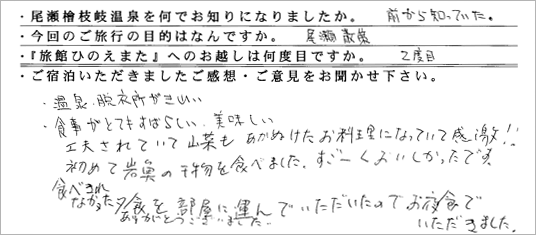 ・尾瀬檜枝岐温泉を何でお知りになりましたか。 前から知っていた。
・今回のご旅行の目的はなんですか。 尾瀬散策
・『旅館ひのえまた』へのお越しは何度目ですか。 2度目
・ご宿泊いただきましたご感想・ご意見をお聞かせ下さい。
・温泉、脱衣所がきれい
・食事がとてもすばらしい、美味しい
工夫されていて山菜もあかぬけたお料理になっていて感激!!
初めて岩魚の干物を食べました。すごーくおいしかったです
食べきれ
なかった夕食を部屋に運んでいただいたのでお夜食で
いただきました。
ありがとうございました。